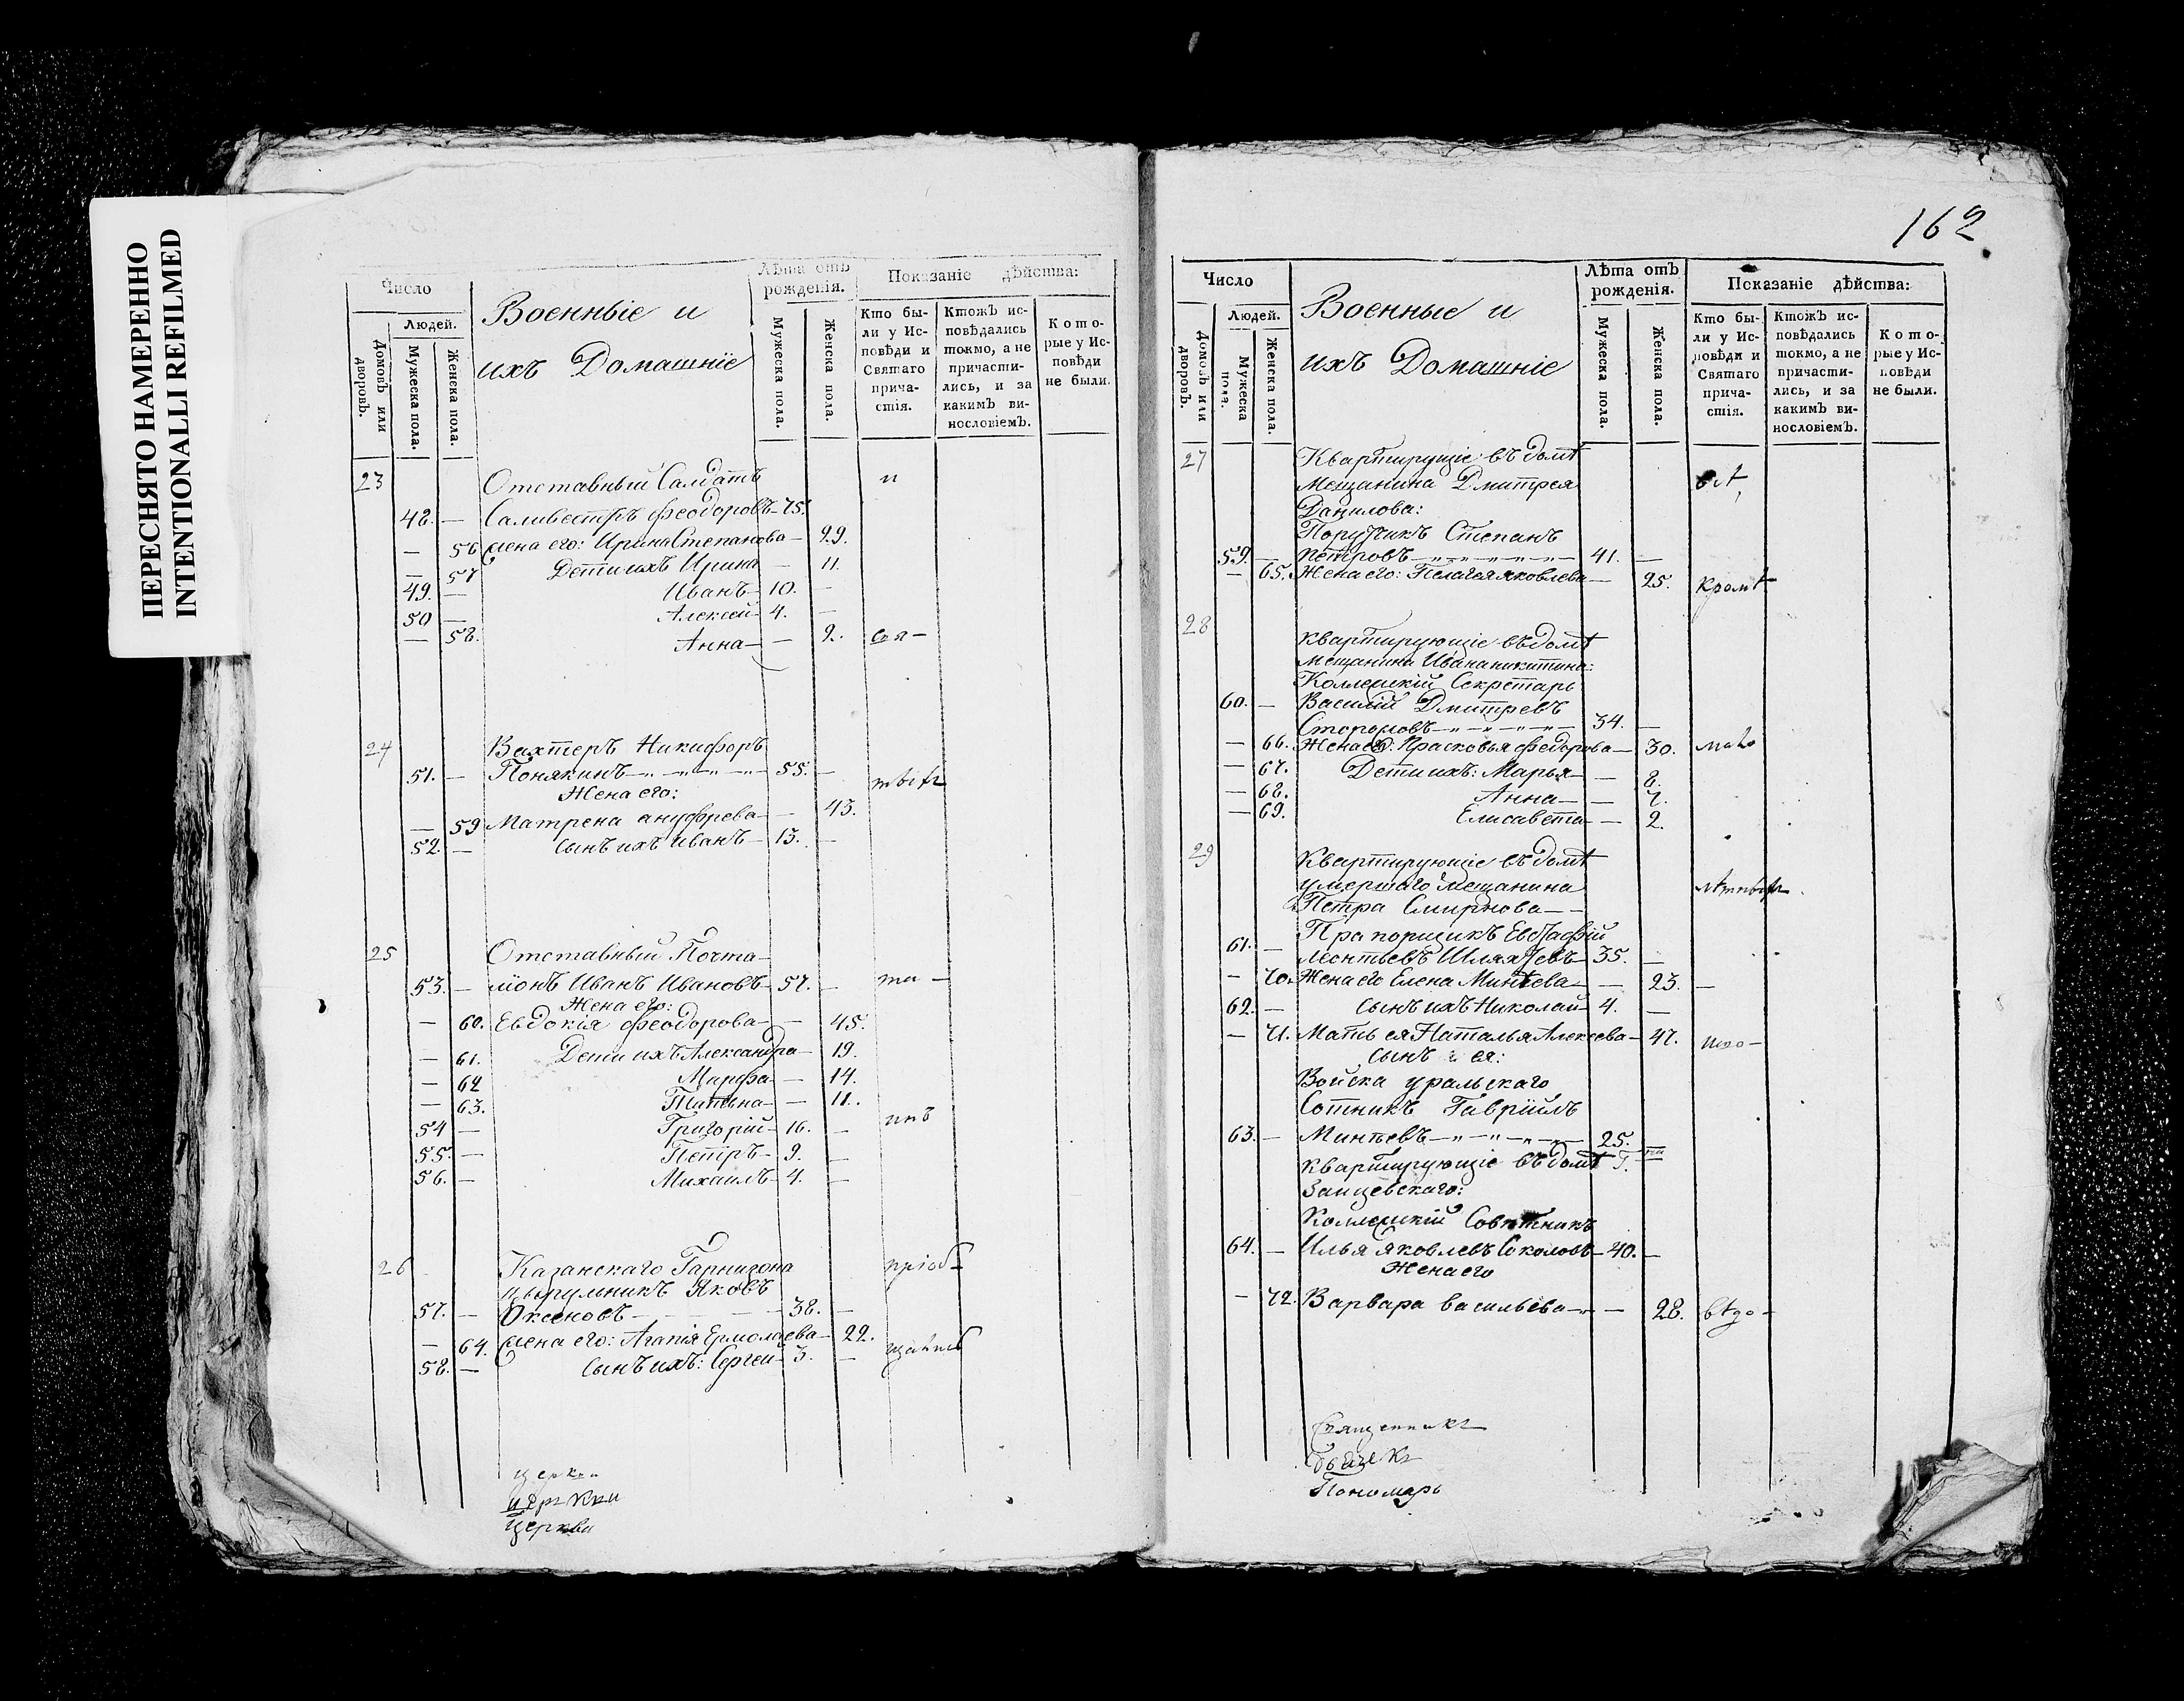 ПЕРЕСНЯТО НАМЕРЕННО
INTENTIONALLI REFILMED
Число
Людей.
Домовъ или дворовъ.
Мужеска пола.
Женска пола.
Военныіе и
ихъ Домашніе
Лѣта отъ рожденія.
Мужеска пола.
Женска пола.
Показаніе дѣйства:
Кто были у Исповѣди и Святаго причастія.
Ктожъ исповѣдались токмо, а не причастились, и за какимъ винословіемъ.
Которые у Исповѣди не были.
23 Отставный Салдатъ и
48. — Саливестръ Феодоровъ — 75.
— 56 Жена его: Ирина Степанова — 29.
— 57 Дети ихъ Ирина — 11.
49. — Иванъ — 10. —
50 — Алексей — 4. —
— 58. Анна — — 2. сея —
24 Вахтеръ Никифоръ
51. — Понякинъ — 55. —
Жена его:
— 59 Матрена ануфрева — — 43.
52. — сынъ ихъ иванъ — 13. —
25 Отставный Почта-
53. — ліонъ Иванъ Ивановъ — 57. —
Жена его:
— 60. Евдокія Феодорова — — 45.
— 61. Дети ихъ Александра — 19.
— 62 Марфа — — 14.
— 63. Татьяна — — 11.
54 — Григорій — 16. —
55. — Петръ — 9. —
56. — Михаилъ — 4. —
26 Казанскаго Гарнизона пріоб-
цырульникъ Яковъ
57. — Оксеновъ — 38. —
— 64. Жена его: Агапія Ермолаева — 22.
58. — Сынъ ихъ: Сергей — 3. —
Церкви
162
Число
Людей.
Домовъ или дворовъ.
Мужеска пола.
Женска пола.
Военные и
ихъ Домашніе
Лѣта отъ рожденія.
Мужеска пола.
Женска пола.
Показаніе дѣйства:
Кто были у Исповѣди и Святаго причастія.
Ктожъ исповѣдались токмо, а не причастились, и за какимъ винословіемъ.
Которые у Исповѣди не были.
27 Квартирущіе въ домѣ
Мещанина Дмитрея
Данилова:
Порутчикъ Степанъ
59. — петровъ — 41. —
— 65. Жена его: Пелагея яковлева — 25. кромѣ
28 квартирующіе въ домѣ
мещанина Ивана никитина:
Коллежскій Секретарь
60. — Василій Дмитревъ
34. —
— 66. Жена его: Прасковья федорова — 30.
— 67. Дети ихъ: Марья — — 8.
— 68. Анна — — 7.
— 69. Елисавета — — 2.
29 Квартирующіе въ домѣ
умершаго мещанина
Петра Смирнова — —
61. — Прапорщикъ
леонтьевъ — 35. —
— 70. Жена его Елена Минѣева — — 23. —
62. — сынъ ихъ Николай — 4. —
— 71. Мать ея Наталья Алексѣева — 47.
сынъ ея:
Войска уральскаго
Сотникъ Гавріилъ
63. — Минѣевъ — 25.
квартирующіе въ домѣ Г.
Заицевскаго:
Коллежскій Совѣтникъ
64. — Илья яковлевъ Соколовъ — 40. —
Жена его
— 72. Варвара васильева — — 28.
Священникъ
Пономарь